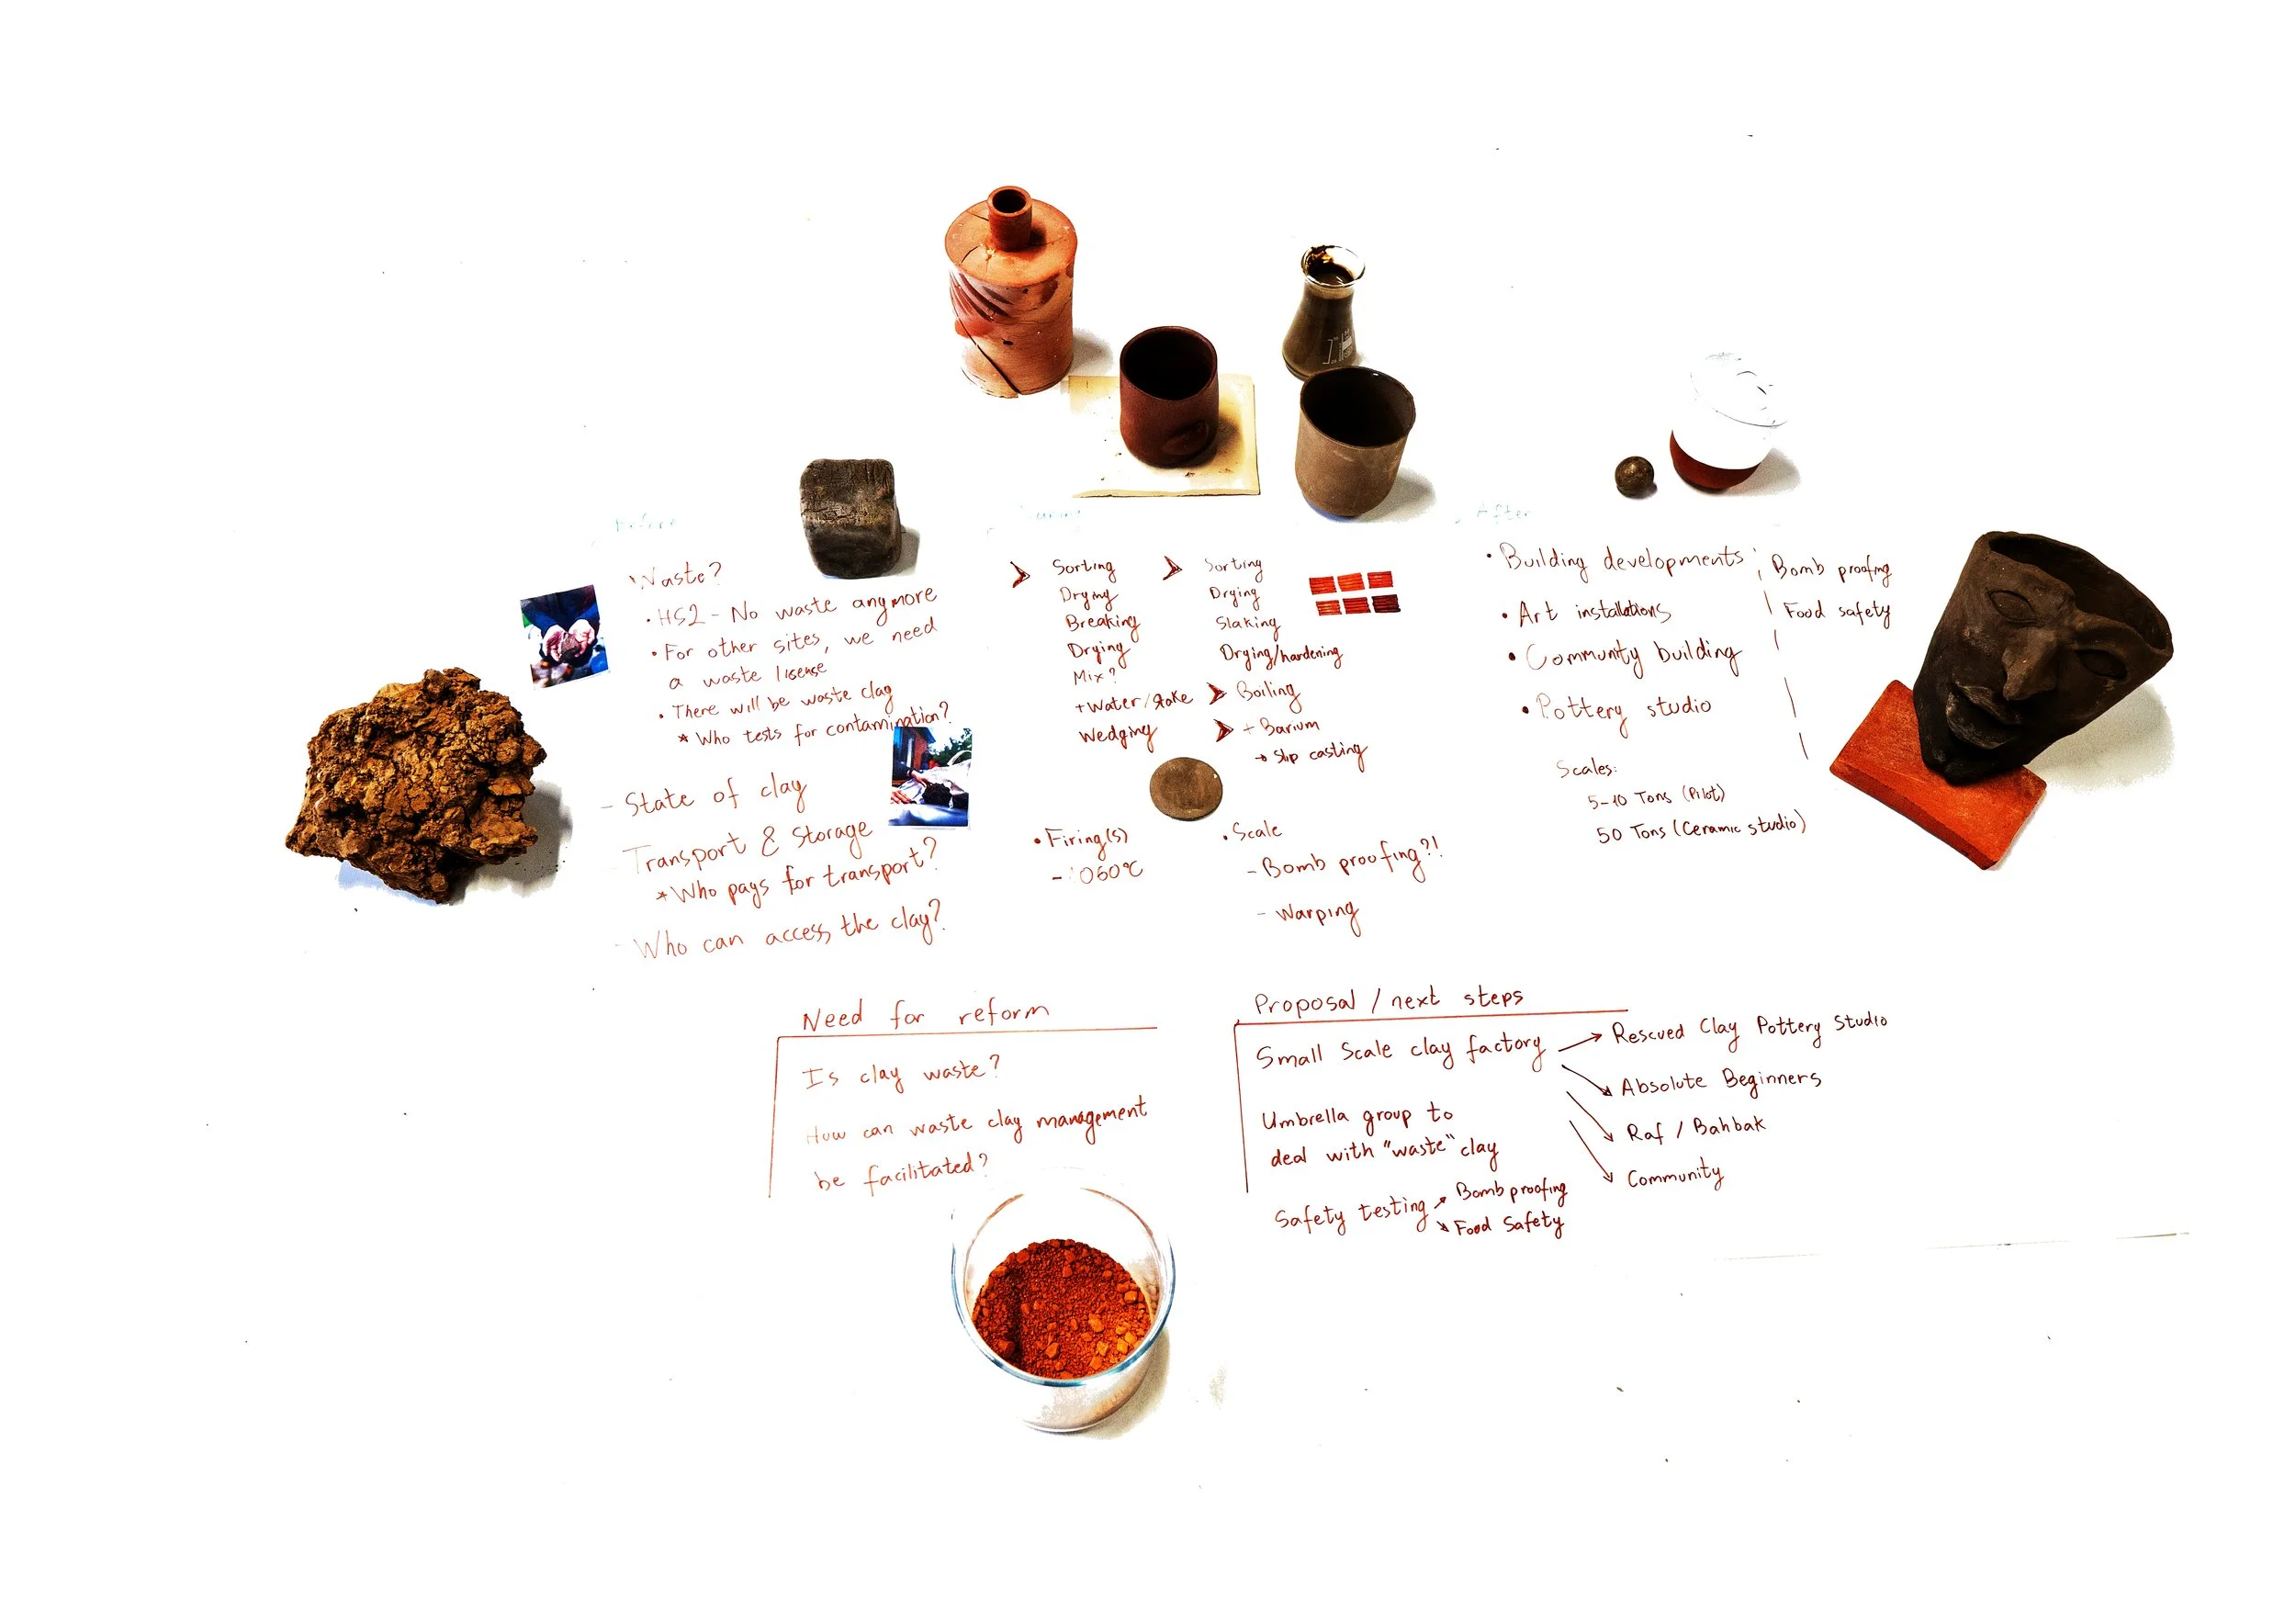 Before
Waste?
• HS2 - No waste anymore
• For other sites, we need
a waste lisense
• There will be waste clay
* Who tests for contamination?
- State of clay
Transport & Storage
* Who pays for transport?
- Who can access the clay?
During
Sorting
Drying
Breaking
Drying
Mix?
+Water/Slake
Wedging
Sorting
Drying
Slaking
Drying/hardening
Boiling
+ Barium
→ Slip casting
• Firing(s)
- 1060°C
• Scale
- Bomb proofing?!
- Warping
After
• Building developments
• Art installations
• Community building
• Pottery studio
Bomb proofing
Food safety
Scales:
5-10 Tons (Pilot)
50 Tons (Ceramic studio)
Need for reform
Is clay waste?
How can waste clay management
be facilitated?
Proposal / next steps
Small Scale clay factory
→ Rescued Clay Pottery Studio
→ Absolute Beginners
→ Raf / Bahbak
→ Community
Umbrella group to
deal with "waste" clay
Safety testing
Bomb proofing
Food Safety